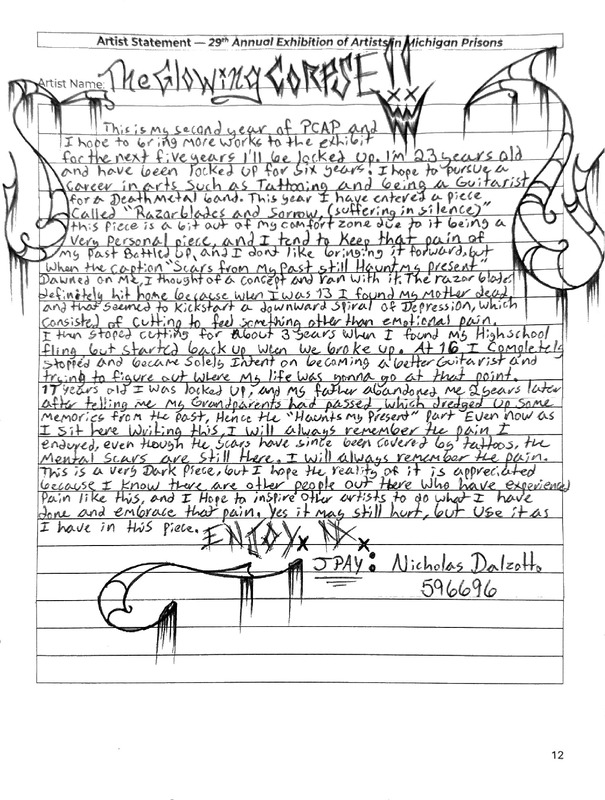 Artist Statement — 29th Annual Exhibition of Artists in Michigan Prisons
Artist Name: The Glowing CORPSE!!
This is my second year of PCAP and
I hope to bring more works to the exhibit
for the next five years I'll be locked up. I'm 23 years old
and have been locked up for six years. I hope to pursue a
career in arts such as Tattooing and being a Guitarist
for a Death Metal band. This year I have entered a piece
Called "Razorblades and Sorrow, (suffering in silence)"
this piece is a bit out of my comfort zone due to it being a
very personal piece, and I tend to keep that pain of
my past Bottled up, and I dont like bringing it forward, but
when the caption "Scars from my Past still Haunt my present"
Dawned on me, I thought of a concept and ran with it. The razor blade
definitely hit home because when I was 13 I found my Mother dead,
and that seemed to Kickstart a downward Spiral of Depression, which
consisted of cutting to feel something other than emotional pain.
I then stoped cutting for about 3 years when I found my Highschool
fling but started back up when we broke up. At 16 I Completely
stopped and became Solely Intent on becoming a better Guitarist and
trying to figure out where my life was gonna go at that point.
17 years old I was locked up, and my father abandoned me 2 years later
after telling me my Grandparents had passed which dredged up some
memories from the past, Hence the "Haunts my Present" part Even now as
I sit here writing this, I will always remember the pain I
endured, even though the scars have since been covered by tattoos, the
Mental Scars are still there. I will always remember the pain.
This is a very Dark Piece, but I hope the reality of it is appreciated
because I know there are other people out there who have experienced
pain like this, and I Hope to inspire other artists to do what I have
done and embrace that pain. Yes it may still hurt, but use it as
I have in this piece.
JPAY: Nicholas Dalzotto
596696
12